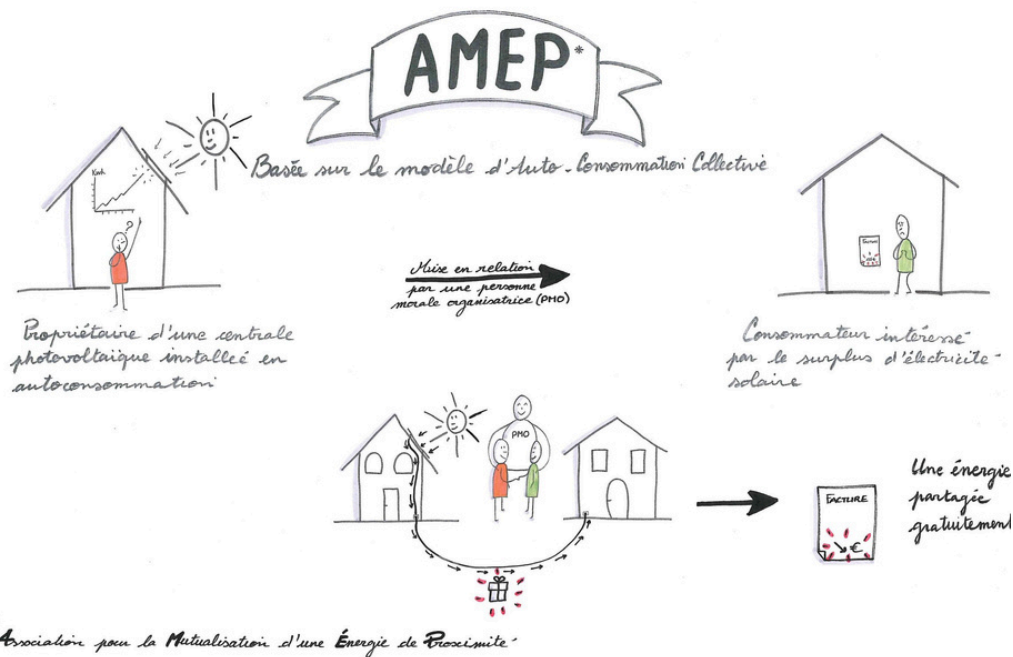 AMEP*
Basée sur le modèle d'Auto-Consommation Collective
Kwh
?
Propriétaire d'une centrale
photovoltaïque installée en
autoconsommation
Mise en relation
par une personne
morale organisatrice (PMO)
FACTURE
Consommateur intéressé
par le surplus d'électricité
solaire
PMO
FACTURE
€
Une énergie
partagée
gratuitement
Association pour la Mutualisation d'une Énergie de Proximité